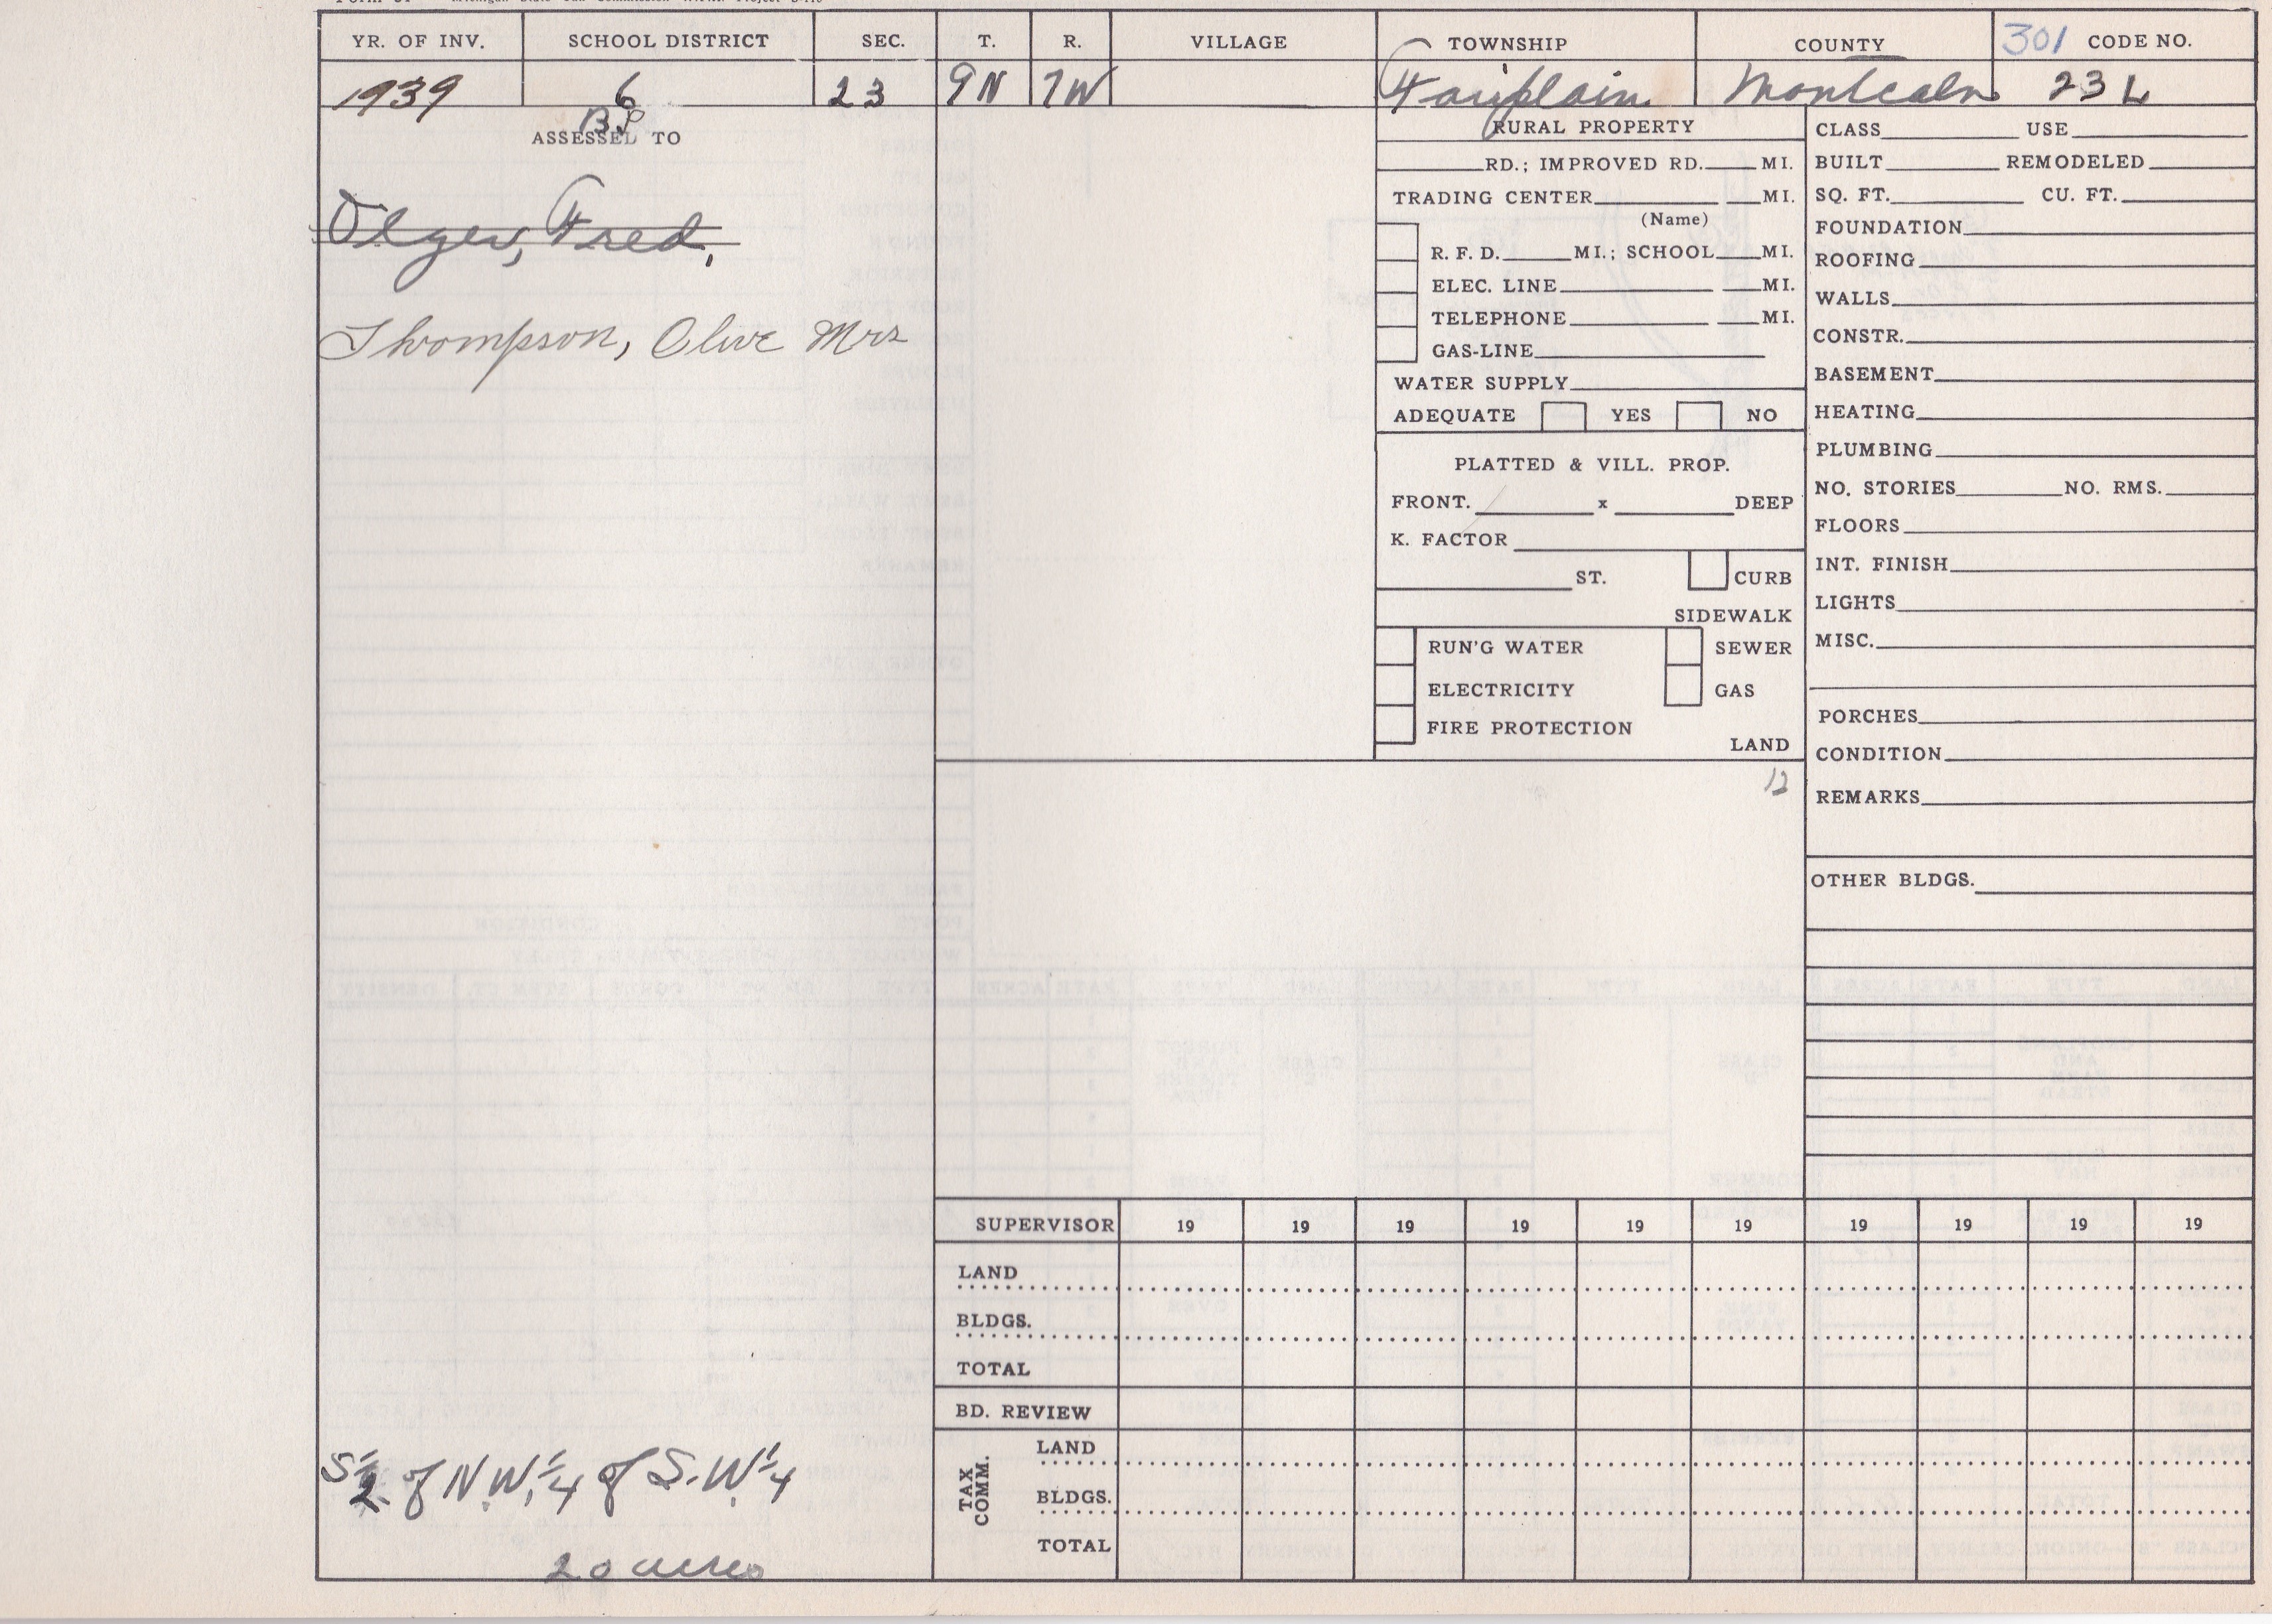 YR. OF INV. SCHOOL DISTRICT SEC. T. R. VILLAGE TOWNSHIP COUNTY 301 CODE NO.
1939 6 23 9N 7W Fairplain Montcalm 23 L
ASSESSED TO
Olger, Fred,
Thompson, Olive Mrs
S 1/2 of N.W. 1/4 of S.W. 1/4
20 acres
RURAL PROPERTY
RD.; IMPROVED RD. MI.
TRADING CENTER MI.
(Name)
R. F. D. MI.; SCHOOL MI.
ELEC. LINE MI.
TELEPHONE MI.
GAS-LINE
WATER SUPPLY
ADEQUATE YES NO
PLATTED & VILL. PROP.
FRONT. x DEEP
K. FACTOR
ST. CURB
SIDEWALK
RUN'G WATER SEWER
ELECTRICITY GAS
FIRE PROTECTION
LAND
12
CLASS USE
BUILT REMODELED
SQ. FT. CU. FT.
FOUNDATION
ROOFING
WALLS
CONSTR.
BASEMENT
HEATING
PLUMBING
NO. STORIES NO. RMS.
FLOORS
INT. FINISH
LIGHTS
MISC.
PORCHES
CONDITION
REMARKS
OTHER BLDGS.
SUPERVISOR 19 19 19 19 19 19 19 19 19 19
LAND
BLDGS.
TOTAL
BD. REVIEW
TAX COMM.
LAND
BLDGS.
TOTAL